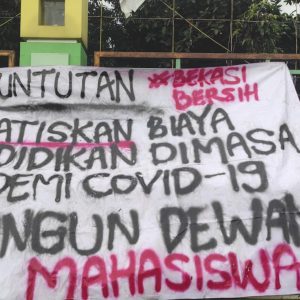 UNTUTAN #BEKASI BERSIH
ATISKAN BIAYA
DIDIKAN DIMASA
DEMI COVID-19
NGUN DEWAN
MAHASISWA